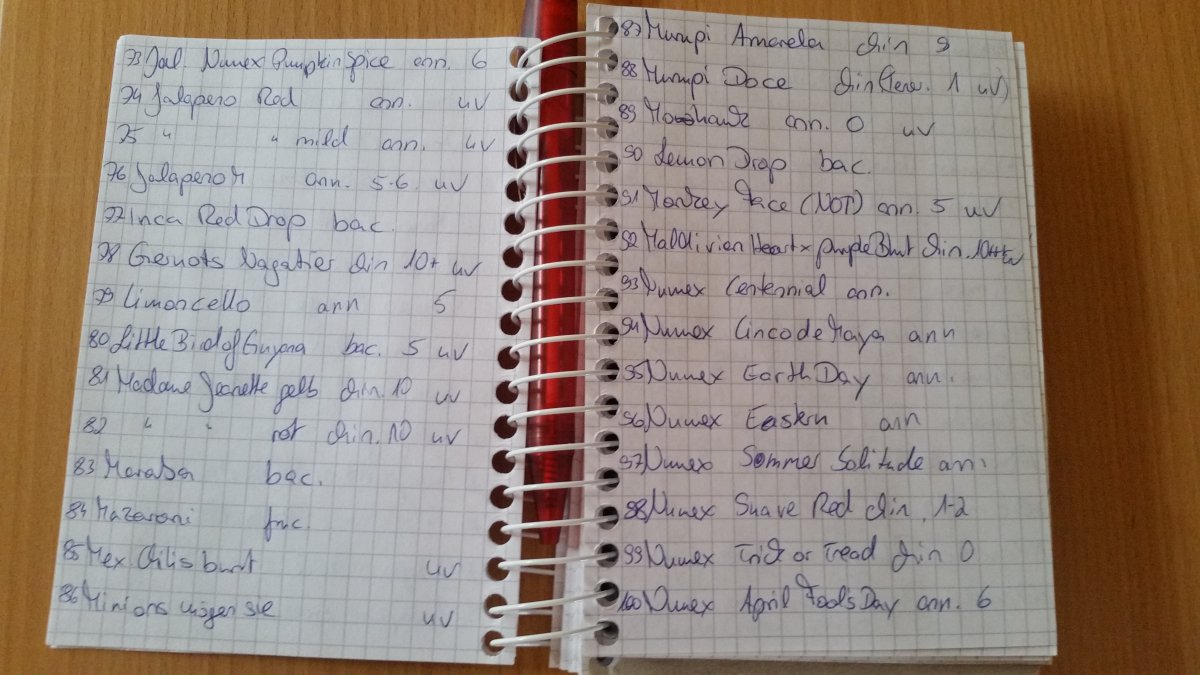 73 Jal. Numex Pumpkin Spice ann. 6
74 Jalapeno Red ann. uv
75 " " mild ann. uv
76 Jalapeno M ann. 5-6 uv
77 Inca Red Drop bac.
78 Gernots chin 10+ uv
79 Limoncello ann 5
80 Little Bird of Guyana bac. 5 uv
81 Madame Jeanette gelb chin. 10 uv
82 " " rot chin. 10 uv
83 bac.
84 Mazaroni
85 Mex Chilis bunt uv
86 Minions mögen sie uv
87 Murupi Amarela chin 9
88 Murupi Doce chin 1 uv)
89 ann. 0 uv
90 Lemon Drop bac.
91 Monkey Face (NOT) ann. 5 uv
92 Maldivien Heart x purple Bhut chin. uv
93 Numex Centennial ann.
94 Numex Cinco de Maya ann
95 Numex Earth Day ann.
96 Numex Eastern ann
97 Numex Sommer Solitude an.
98 Numex Suave Red chin. 1-2
99 Numex Trick or Tread chin 0
100 Numex April Fools Day ann. 6